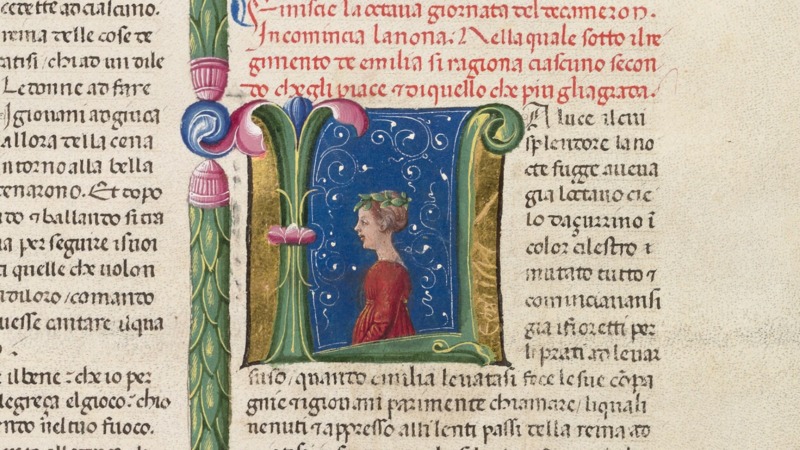 cedette ad ciascuno.
reina delle cose de
ratisi / chi ad un dile
Le donne ad fare
I giouani ad giuca
allora della cena
ntorno alla bella
cenarono. Et dopo
do ⁊ ballando si tra
a per seguire i suoi
ti quelle che uolon
di loro / comando
uesse cantare il qua
e il bene : che io per
legreça el gioco : chio
ento nel tuo fuoco.
Finiscie la octaua giornata del decameron.
Incomincia la nona. Nella quale sotto il re
gimento de emilia si ragiona ciascuno secon
do che gli piace ⁊ di quello che piu gli agrada.
LA luce il cui
splendore la no
cte fugge aueua
gia loctauo cie
lo daçurrino ī
color cilestro ī
mutato tutto ⁊
cominciauansi
gia i fioretti per
li prati ad leuar
suso / quando emilia leuatasi fece le sue cōpa
gnie ⁊ i giouani parimente chiamare / li quali
uenuti ⁊ appresso alli lenti passi della reina ad